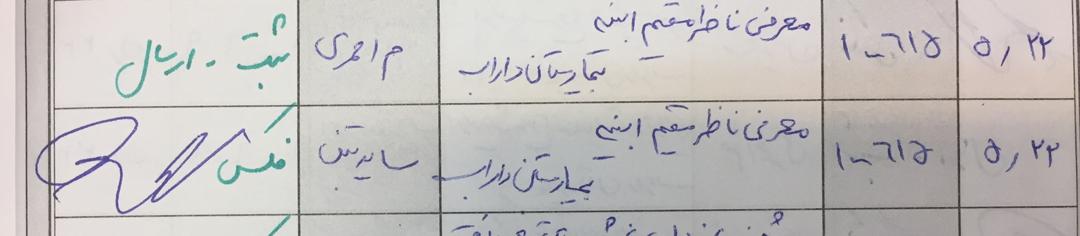 ۵٫۲۲ ۱-۶۱۵ معرفی ناظر مقیم ابنیه م احمدی ثبت - ارسال
بیمارستان داراب
۵٫۲۲ ۱-۶۱۵ معرفی ناظر مقیم ابنیه سایر تین فکس
بیمارستان داراب